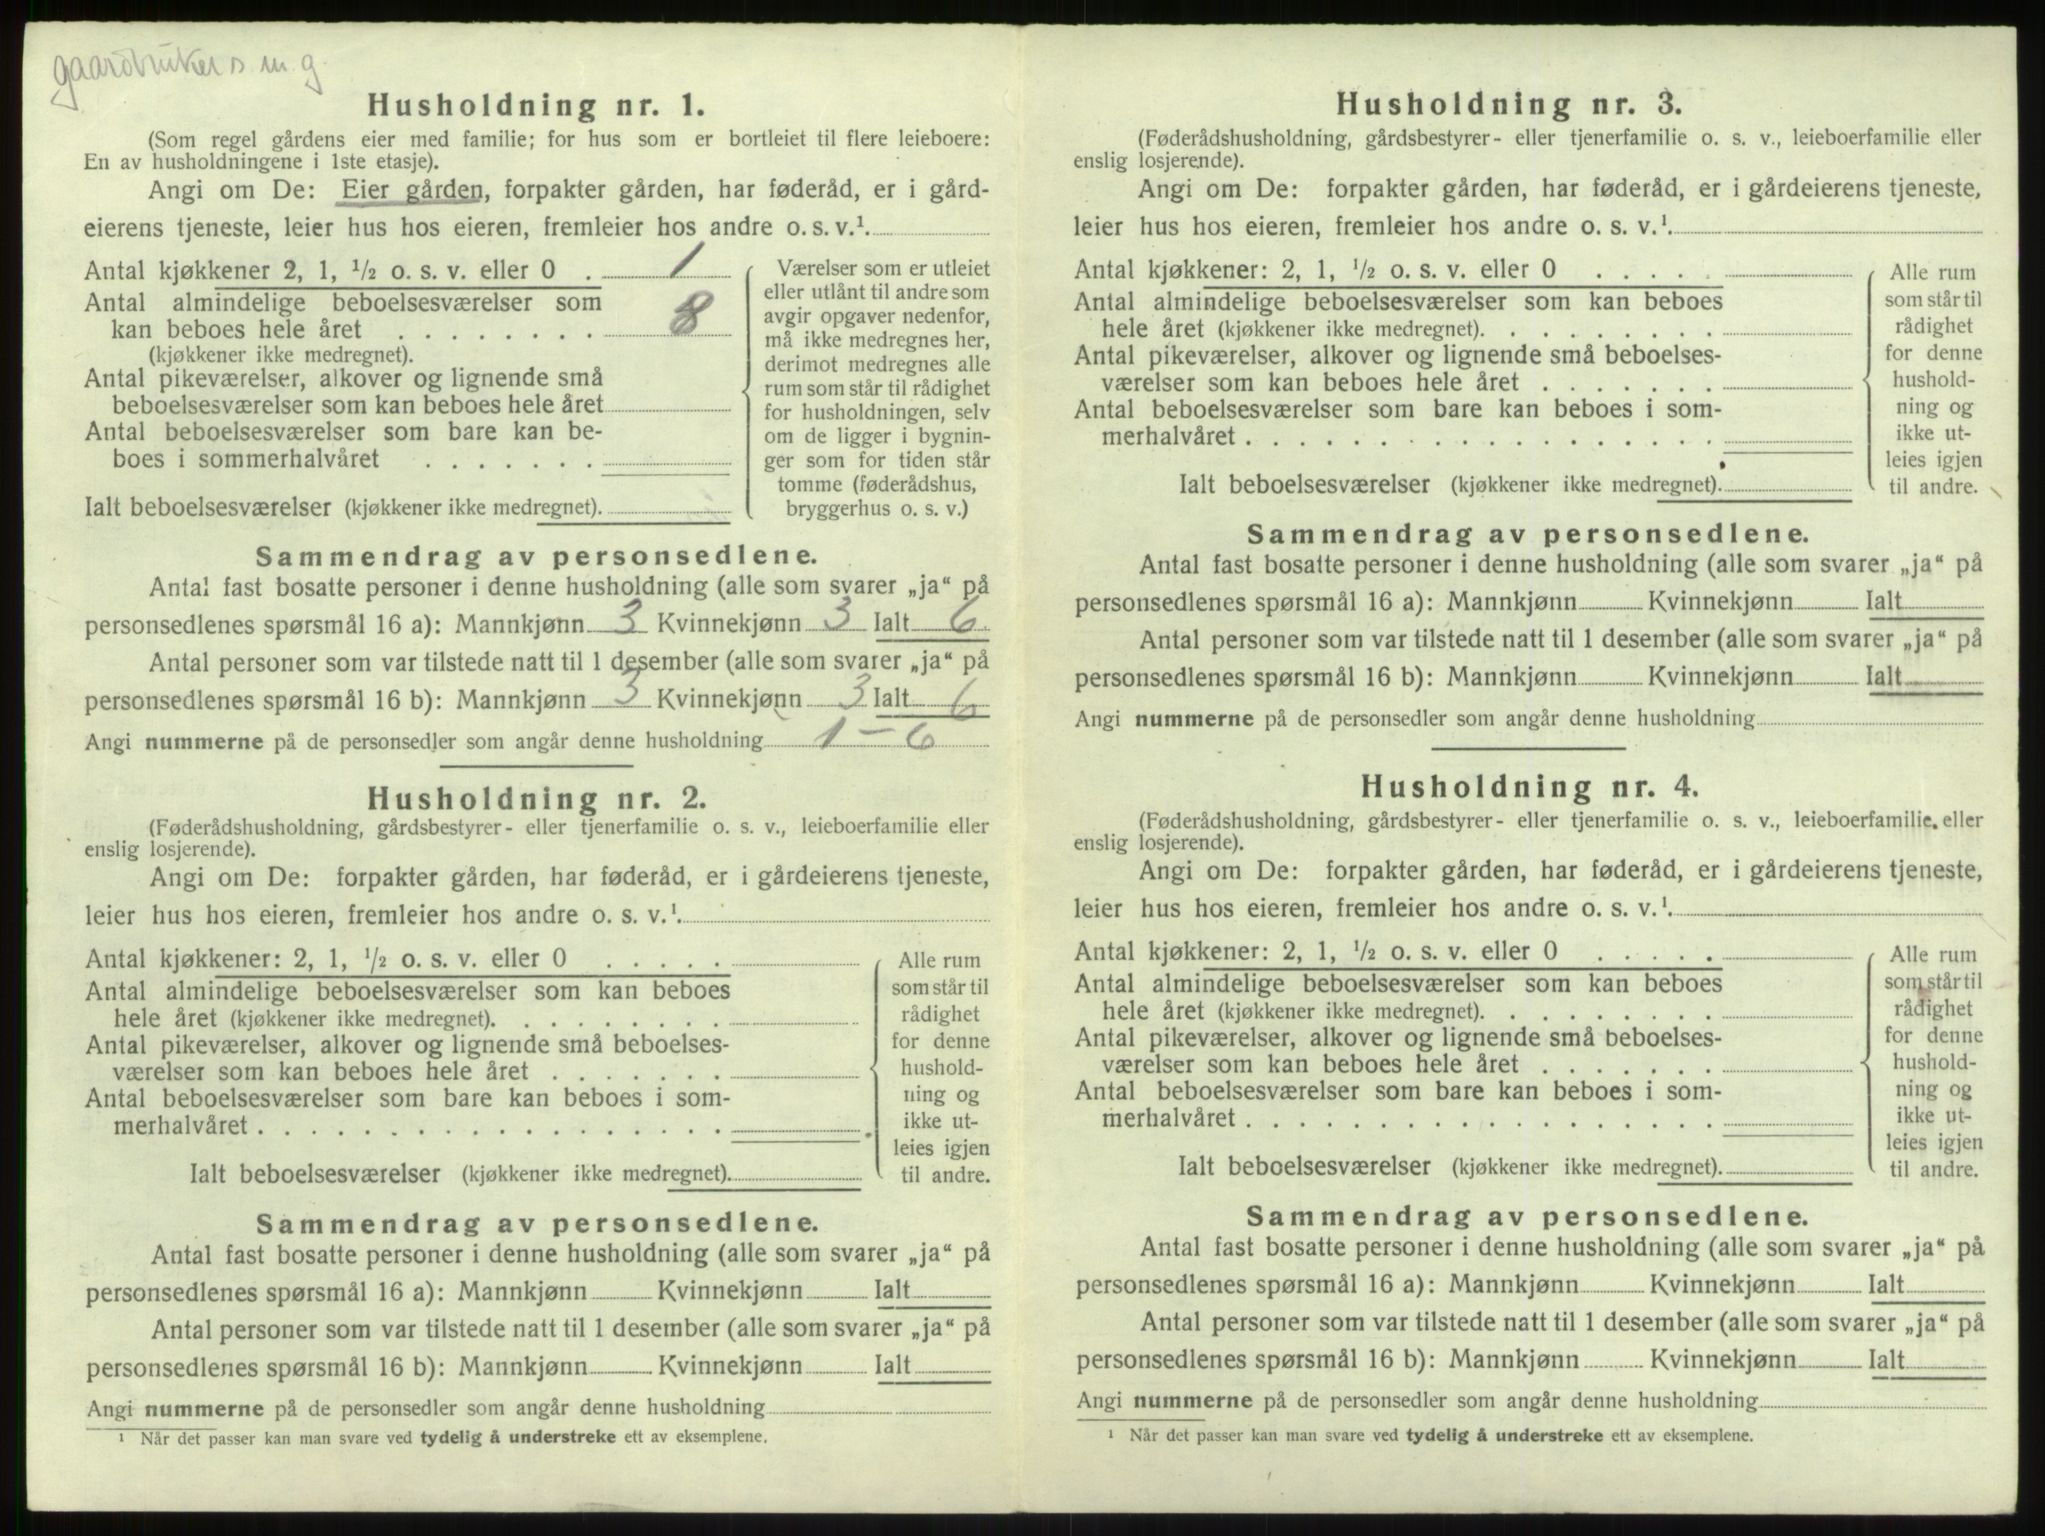 gaardbruker s m g.
Husholdning nr. 1.
(Som regel gårdens eier med familie; for hus som er bortleiet til flere leieboere:
En av husholdningene i 1ste etasje).
Angi om De: Eier gården, forpakter gården, har føderåd, er i gård-
eierens tjeneste, leier hus hos eieren, fremleier hos andre o. s. v.¹.
Antal kjøkkener 2, 1, ½ o. s. v. eller 0 . 1
Antal almindelige beboelsesværelser som
kan beboes hele året . . . . . . . 8
(kjøkkener ikke medregnet).
Antal pikeværelser, alkover og lignende små
beboelsesværelser som kan beboes hele året
Antal beboelsesværelser som bare kan be-
boes i sommerhalvåret . . . . . . .
Ialt beboelsesværelser (kjøkkener ikke medregnet).
Værelser som er utleiet
eller utlånt til andre som
avgir opgaver nedenfor,
må ikke medregnes her,
derimot medregnes alle
rum som står til rådighet
for husholdningen, selv
om de ligger i bygnin-
ger som for tiden står
tomme (føderådshus,
bryggerhus o. s. v.)
Sammendrag av personsedlene.
Antal fast bosatte personer i denne husholdning (alle som svarer „ja“ på
personsedlenes spørsmål 16 a): Mannkjønn 3 Kvinnekjønn 3 Ialt 6
Antal personer som var tilstede natt til 1 desember (alle som svarer „ja“ på
personsedlenes spørsmål 16 b): Mannkjønn 3 Kvinnekjønn 3 Ialt 6
Angi nummerne på de personsedler som angår denne husholdning 1 – 6
Husholdning nr. 2.
(Føderådshusholdning, gårdsbestyrer- eller tjenerfamilie o. s. v., leieboerfamilie eller
enslig losjerende).
Angi om De: forpakter gården, har føderåd, er i gårdeierens tjeneste,
leier hus hos eieren, fremleier hos andre o. s. v.¹.
Antal kjøkkener: 2, 1, ½ o. s. v. eller 0 . . . . .
Antal almindelige beboelsesværelser som kan beboes
hele året (kjøkkener ikke medregnet). . . . . . . .
Antal pikeværelser, alkover og lignende små beboelses-
værelser som kan beboes hele året . . . . . . .
Antal beboelsesværelser som bare kan beboes i som-
merhalvåret . . . . . . . . . . . . . . . . . .
Ialt beboelsesværelser (kjøkkener ikke medregnet).
Alle rum
som står til
rådighet
for denne
hushold-
ning og
ikke ut-
leies igjen
til andre.
Sammendrag av personsedlene.
Antal fast bosatte personer i denne husholdning (alle som svarer „ja“ på
personsedlenes spørsmål 16 a): Mannkjønn Kvinnekjønn Ialt
Antal personer som var tilstede natt til 1 desember (alle som svarer „ja“ på
personsedlenes spørsmål 16 b): Mannkjønn Kvinnekjønn Ialt
Angi nummerne på de personsedler som angår denne husholdning
¹ Når det passer kan man svare ved tydelig å understreke ett av eksemplene.
Husholdning nr. 3.
(Føderådshusholdning, gårdsbestyrer- eller tjenerfamilie o. s. v., leieboerfamilie eller
enslig losjerende).
Angi om De: forpakter gården, har føderåd, er i gårdeierens tjeneste,
leier hus hos eieren, fremleier hos andre o. s. v.¹.
Antal kjøkkener: 2, 1, ½ o. s. v. eller 0 . . . . .
Antal almindelige beboelsesværelser som kan beboes
hele året (kjøkkener ikke medregnet). . . . . . . .
Antal pikeværelser, alkover og lignende små beboelses-
værelser som kan beboes hele året . . . . . . .
Antal beboelsesværelser som bare kan beboes i som-
merhalvåret . . . . . . . . . . . . . . . . . .
Ialt beboelsesværelser (kjøkkener ikke medregnet).
Alle rum
som står til
rådighet
for denne
hushold-
ning og
ikke ut-
leies igjen
til andre.
Sammendrag av personsedlene.
Antal fast bosatte personer i denne husholdning (alle som svarer „ja“ på
personsedlenes spørsmål 16 a): Mannkjønn Kvinnekjønn Ialt
Antal personer som var tilstede natt til 1 desember (alle som svarer „ja“ på
personsedlenes spørsmål 16 b): Mannkjønn Kvinnekjønn Ialt
Angi nummerne på de personsedler som angår denne husholdning
Husholdning nr. 4.
(Føderådshusholdning, gårdsbestyrer- eller tjenerfamilie o. s. v., leieboerfamilie eller
enslig losjerende).
Angi om De: forpakter gården, har føderåd, er i gårdeierens tjeneste,
leier hus hos eieren, fremleier hos andre o. s. v.¹.
Antal kjøkkener: 2, 1, ½ o. s. v. eller 0 . . . . .
Antal almindelige beboelsesværelser som kan beboes
hele året (kjøkkener ikke medregnet). . . . . . . .
Antal pikeværelser, alkover og lignende små beboelses-
værelser som kan beboes hele året . . . . . . .
Antal beboelsesværelser som bare kan beboes i som-
merhalvåret . . . . . . . . . . . . . . . . . .
Ialt beboelsesværelser (kjøkkener ikke medregnet).
Alle rum
som står til
rådighet
for denne
hushold-
ning og
ikke ut-
leies igjen
til andre.
Sammendrag av personsedlene.
Antal fast bosatte personer i denne husholdning (alle som svarer „ja“ på
personsedlenes spørsmål 16 a): Mannkjønn Kvinnekjønn Ialt
Antal personer som var tilstede natt til 1 desember (alle som svarer „ja“ på
personsedlenes spørsmål 16 b): Mannkjønn Kvinnekjønn Ialt
Angi nummerne på de personsedler som angår denne husholdning
¹ Når det passer kan man svare ved tydelig å understreke ett av eksemplene.